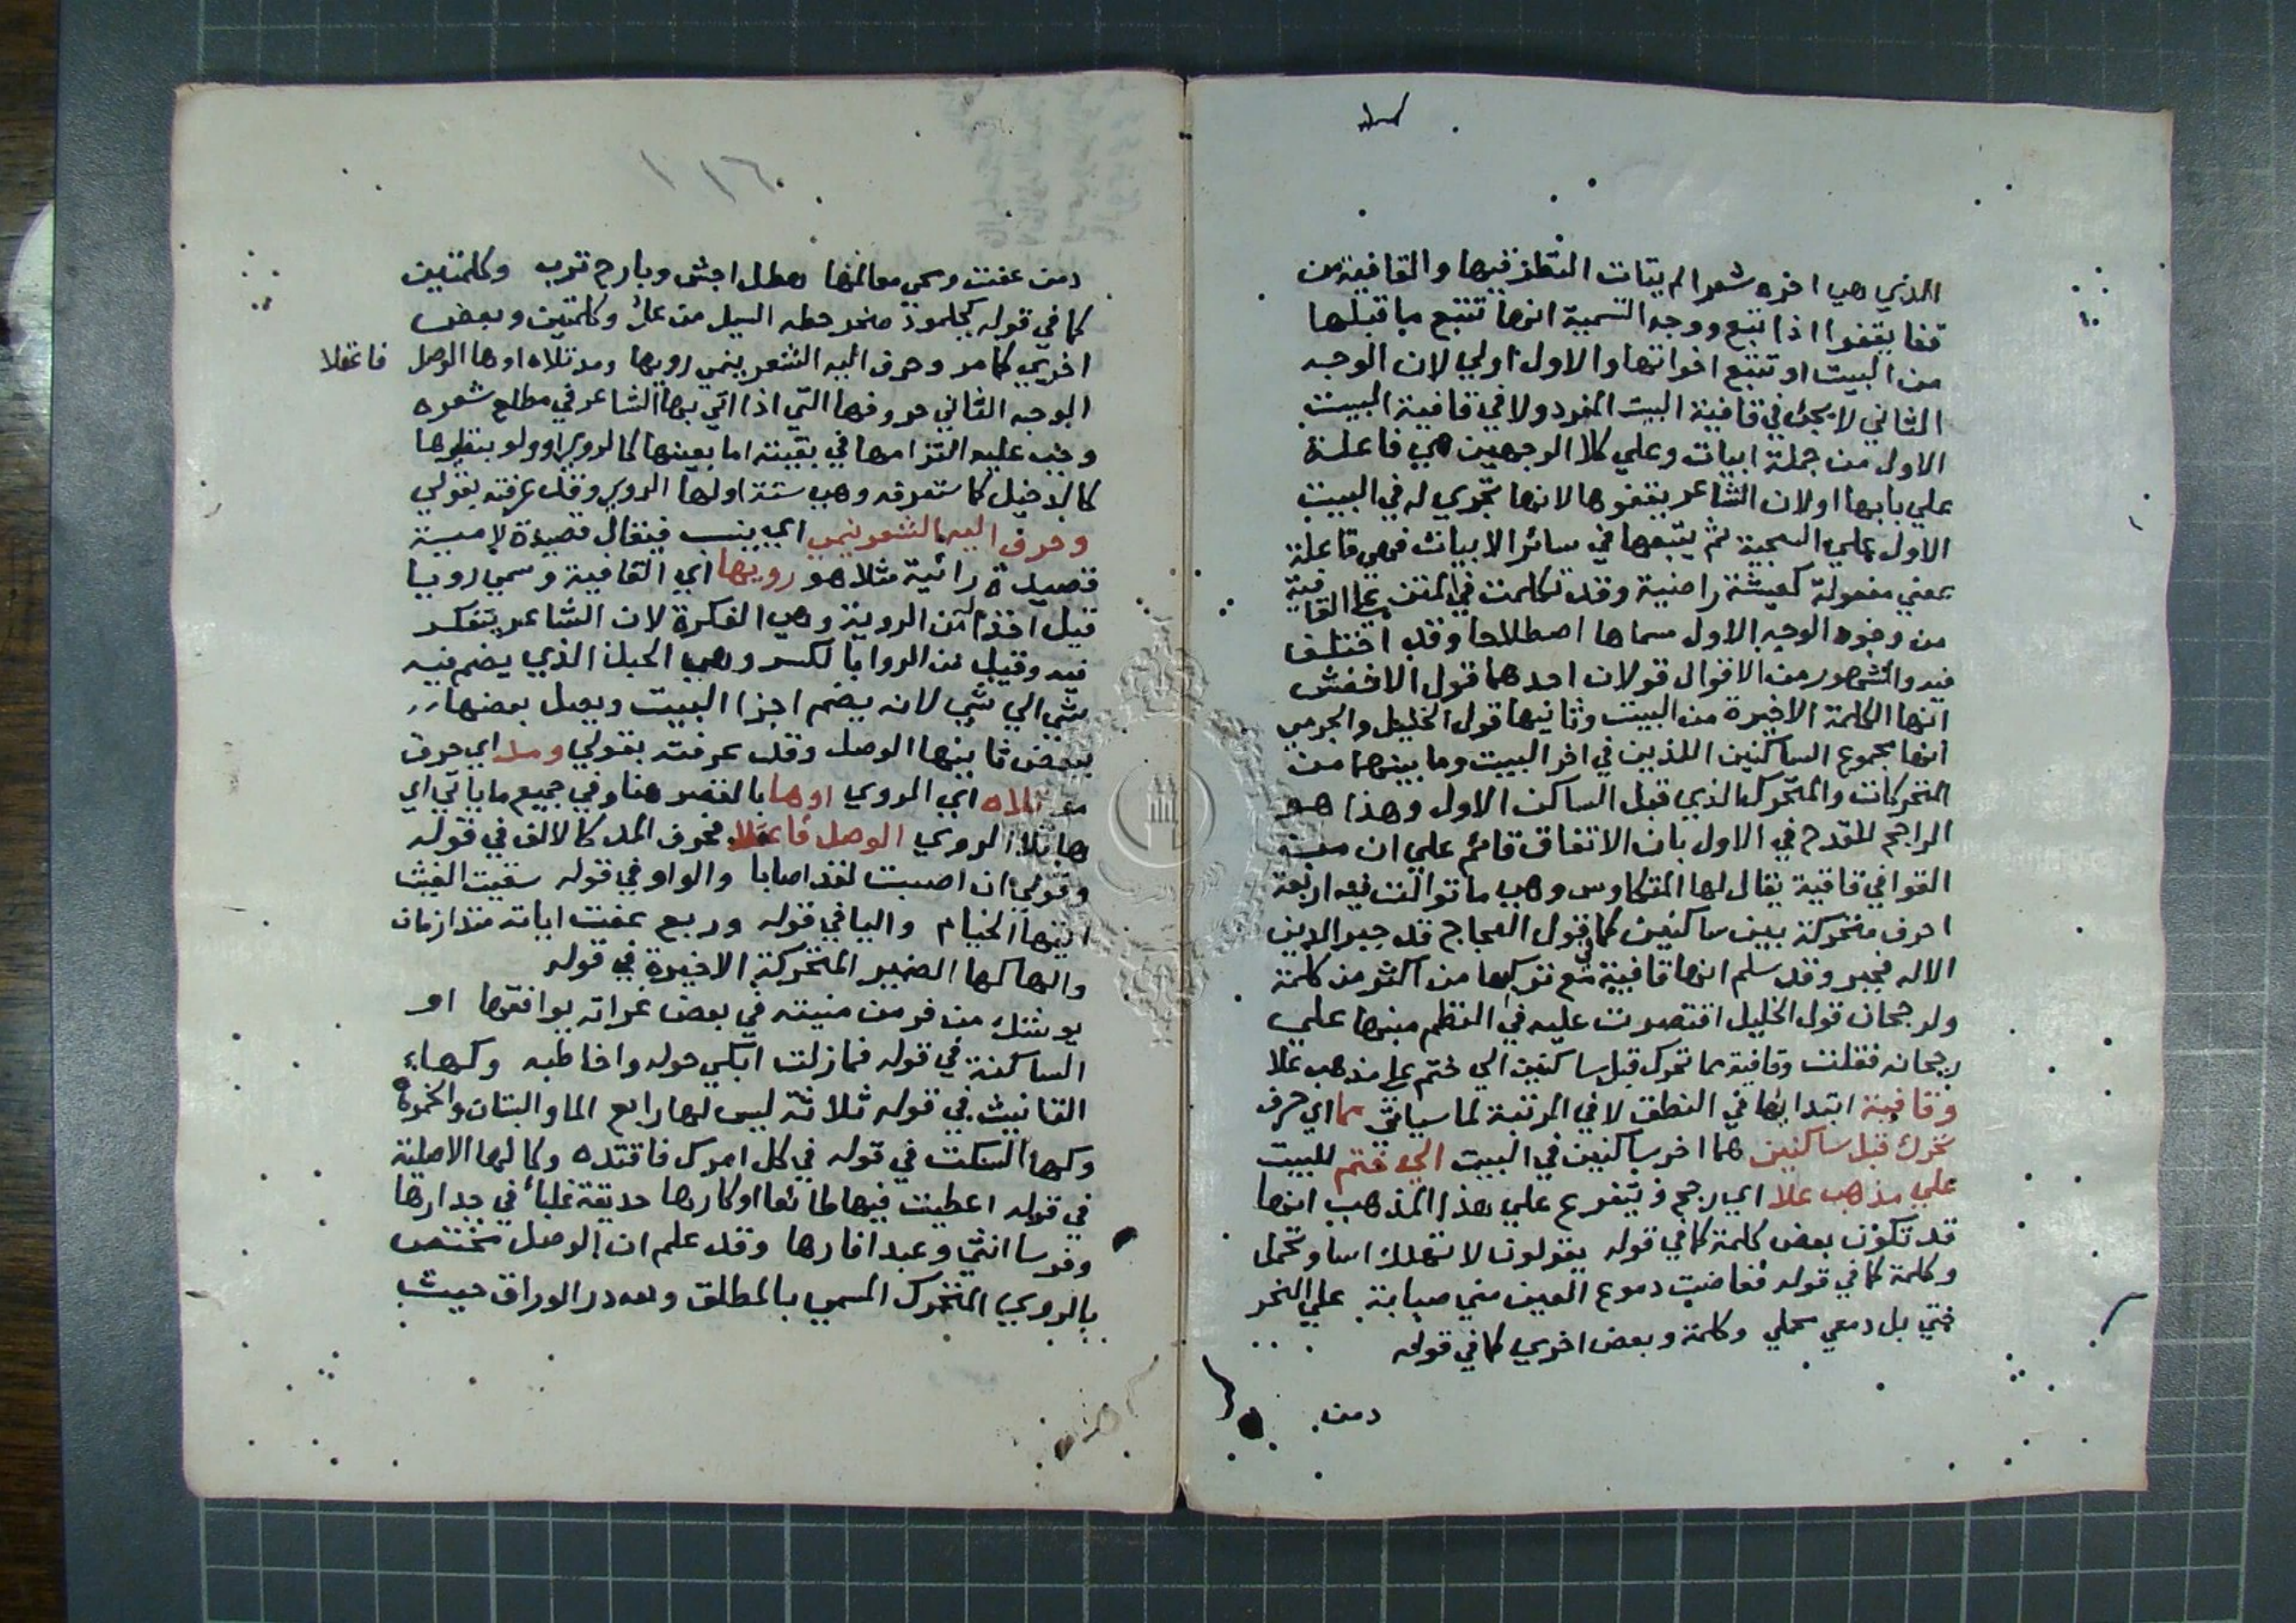 الذي هي اخره شعر الابيات النظر فيها والقافية من
قفا يقفوا اذا تبع ووجه التسمية انها تتبع ما قبلها
من البيت او تتبع اخواتها والاول اولي لان الوجه
الثاني لا يجئ في قافية البيت المفرد ولا في قافية البيت
الاول من جملة ابيات وعلي كلا الوجهين هي فاعلة
علي بابها او لان الشاعر يقفوها لانها تجري له في البيت
الاول علي السجية ثم يتبعها في سائر الابيات فهي فاعلة
بمعني مفعولة كعيشة راضية وقد تكلمت في المتن علي القافية
من وجوه الوجه الاول مسماها اصطلاحا وقد اختلف
فيه والمشهور من الاقوال قولان احدهما قول الاخفش
انها الكلمة الاخيرة من البيت وثانيها قول الخليل والجرمي
انها مجموع الساكنين اللذين في اخر البيت وما بينهما من
المتحركات والمتحرك الذي قبل الساكن الاول وهذا هو
الراجح للقدح في الاول بان الاتفاق قائم علي ان من
القوافي قافية يقال لها المتكاوس وهي ما توالت فيه اربعة
احرف متحركة بين ساكنين كما في قول العجاج قد جبر الدين
الاله فجبر وقد سلم انها قافية مع تركبها من اكثر من كلمة
ولرجحان قول الخليل اقتصرت عليه في النظم منبها علي
رجحانه فقلت وقافية ما تحرك قبل ساكنين الي ختم علي مذهب علا
وقافية ابتدا بها في النطق لا في المرتبة لما سياتي ما اي حرف
تحرك قبل ساكنين هما اخر ساكنين في البيت الي ختم للبيت
علي مذهب علا اي رجح ويتفرع علي هذا المذهب انها
قد تكون بعض كلمة كما في قوله يقولون لا تهلك اسا وتحمل
وكلمة كما في قوله ففاضت دموع العين مني صبابة علي النحر
حتي بل دمعي محملي وكلمة وبعض اخري كما في قوله
دمن
١١٦
دمن عفت ومحي معالمها هطل اجش وبارح ترب وكلمتين
كما في قوله كجلمود صخر حطه السيل من عل وكلمتين وبعض
اخري كما مر وحرف اليه الشعر ينمي رويها ومد تلاه اوها الوصل فاعقلا
الوجه الثاني حروفها التي اذا اتي بها الشاعر في مطلع شعره
وجب عليه التزامها في بقيته اما بعينها كالروي او ولو بنظيرها
كالدخيل كما ستعرفه وهي ستة اولها الروي وقد عرفته بقولي
وحرف اليه الشعر ينمي اي ينسب فيقال قصيدة لامية
قصيدة رائية مثلا هو رويها اي القافية وسمي رويا
قيل اخذا من الروية وهي الفكرة لان الشاعر يتفكر
فيه وقيل من الروا بالكسر وهي الحبل الذي يضم فيه
شي الي شي لانه يضم اجزا البيت ويصل بعضها
ببعض ثانيها الوصل وقد عرفته بقولي ومد اي حرف
مد تلاه اي الروي اوها بالقصر هنا وفي جميع ما ياتي اي
ها تلا الروي الوصل فاعقلا فحرف المد كالالف في قوله
وقولي ان اصبت لقد اصابا والواو في قوله سقيت الغيث
ايتها الخيام واليا في قوله وربع عفت اياته منذ ازمان
والها كها الضمير المتحركة الاخيرة في قوله
يوشك من فر من منيته في بعض غراته يوافقها او
الساكنة في قوله فما زلت ابكي حوله واخاطبه وكهاء
التانيث في قوله ثلاثة ليس لها رابع الما والبستان والخمرة
وكها السكت في قوله في كل امرك فاقتده وكالها الاصلية
في قوله اعطيت فيها طائعا او كارها حديقة غلباء في جدارها
وفرسا انثي وعبدا فارها وقد علم ان الوصل مختص
بالروي المتحرك المسمي بالمطلق ولله در الوراق حيث